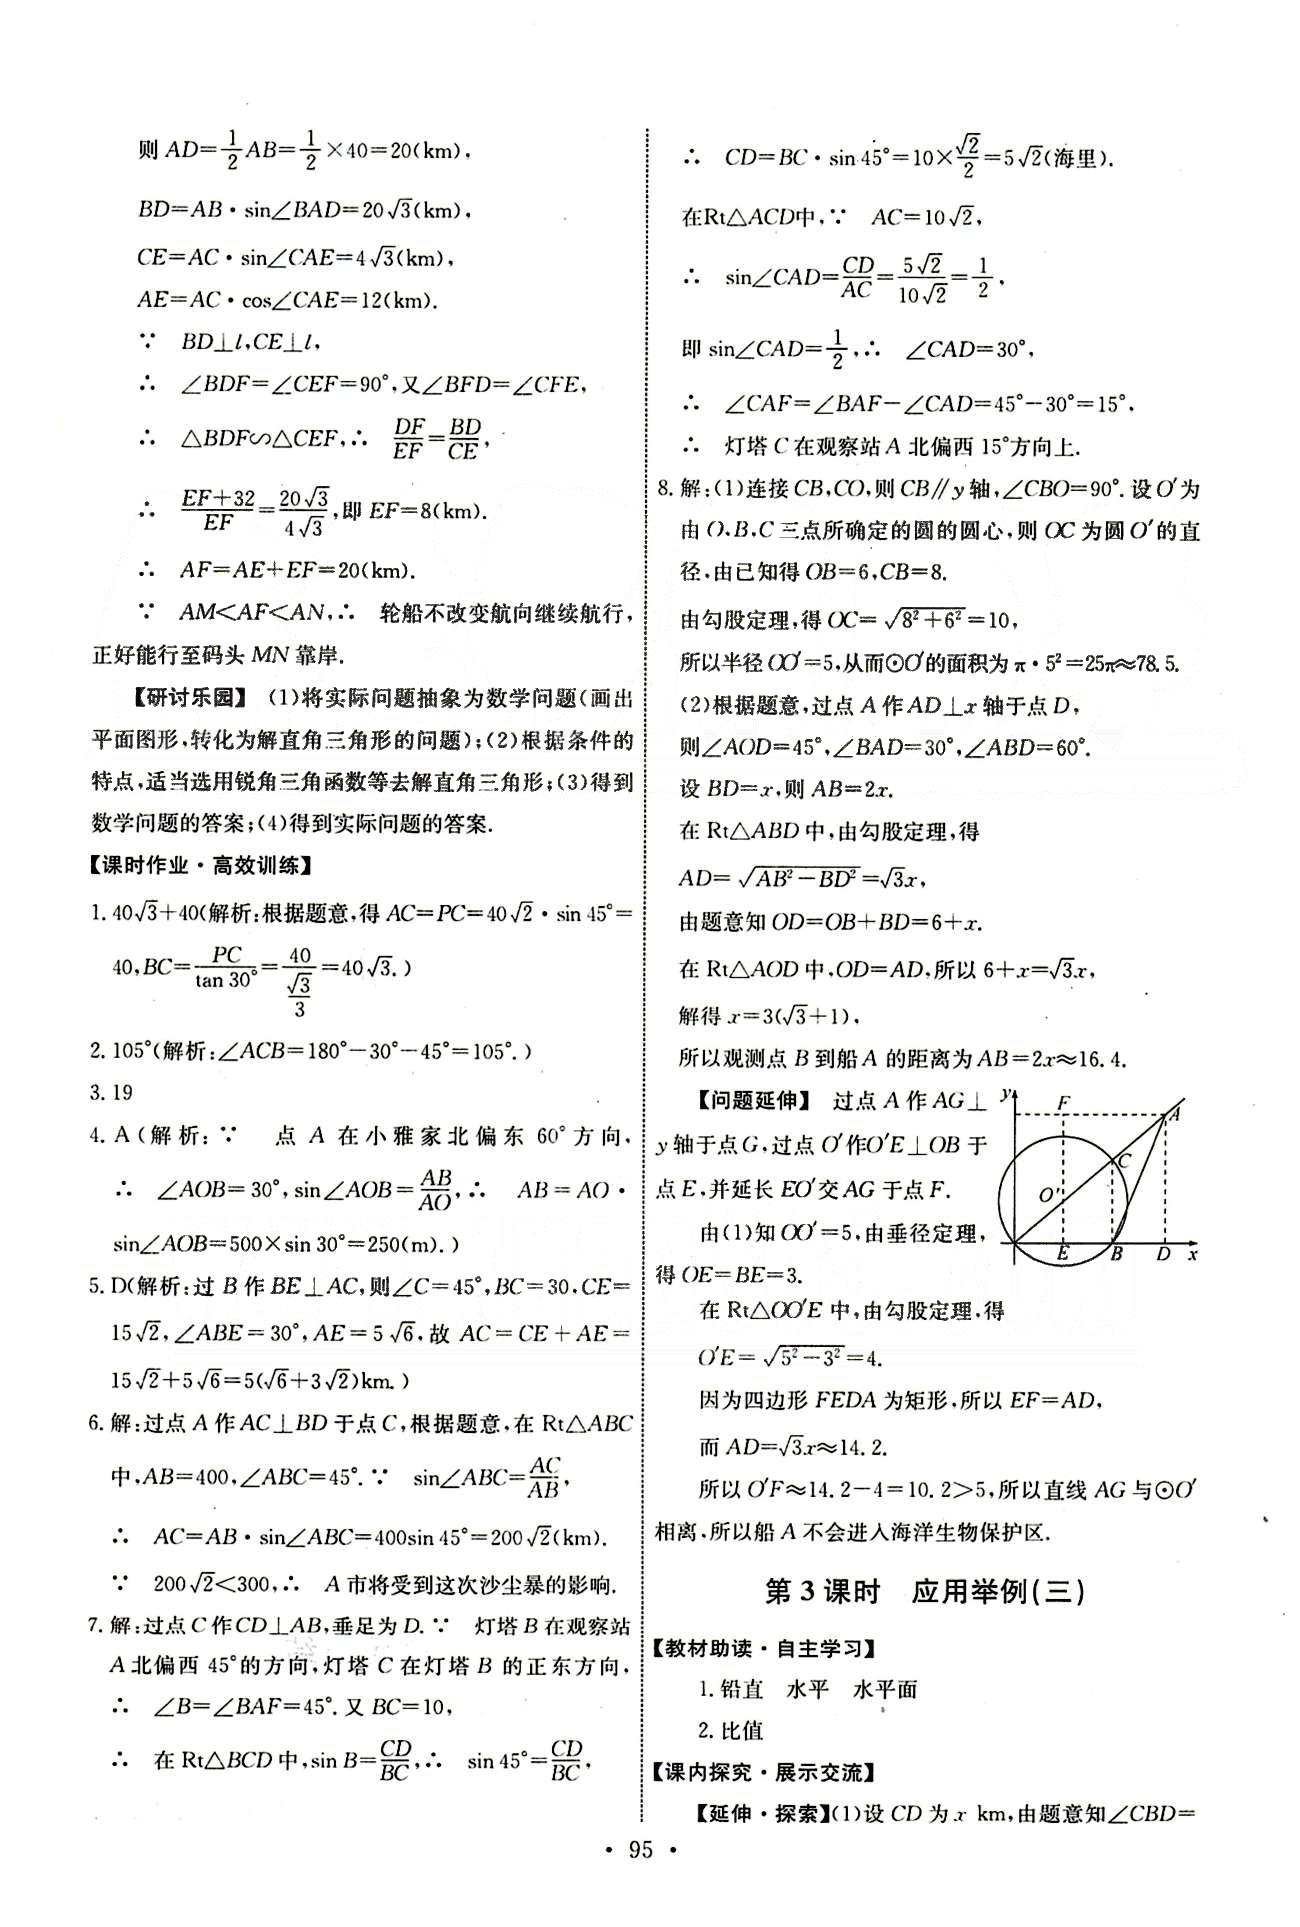 则 AD=1/2AB=1/2×40=20(km),
BD=AB·sin∠BAD=20√3(km),
CE=AC·sin∠CAE=4√3(km),
AE=AC·cos∠CAE=12(km).
∵ BD⊥l,CE⊥l,
∴ ∠BDF=∠CEF=90°,又∠BFD=∠CFE,
∴ △BDF∽△CEF,∴ DF/EF=BD/CE,
∴ (EF+32)/EF=20√3/4√3,即 EF=8(km).
∴ AF=AE+EF=20(km).
∵ AM<AF<AN,∴ 轮船不改变航向继续航行,
正好能行至码头 MN 靠岸.
【研讨乐园】 (1)将实际问题抽象为数学问题(画出
平面图形,转化为解直角三角形的问题);(2)根据条件的
特点,适当选用锐角三角函数等去解直角三角形;(3)得到
数学问题的答案;(4)得到实际问题的答案.
【课时作业·高效训练】
1. 40√3+40(解析:根据题意,得 AC=PC=40√2·sin 45°=
40,BC=PC/tan 30°=40/(√3/3)=40√3.)
2. 105°(解析:∠ACB=180°-30°-45°=105°.)
3. 19
4. A(解析:∵ 点 A 在小雅家北偏东 60°方向,
∴ ∠AOB=30°,sin∠AOB=AB/AO,∴ AB=AO·
sin∠AOB=500×sin 30°=250(m).)
5. D(解析:过 B 作 BE⊥AC,则∠C=45°,BC=30,CE=
15√2,∠ABE=30°,AE=5√6,故 AC=CE+AE=
15√2+5√6=5(√6+3√2)km.)
6. 解:过点 A 作 AC⊥BD 于点 C,根据题意,在 Rt△ABC
中,AB=400,∠ABC=45°.∵ sin∠ABC=AC/AB,
∴ AC=AB·sin∠ABC=400sin 45°=200√2(km).
∵ 200√2<300,∴ A 市将受到这次沙尘暴的影响.
7. 解:过点 C 作 CD⊥AB,垂足为 D.∵ 灯塔 B 在观察站
A 北偏西 45°的方向,灯塔 C 在灯塔 B 的正东方向,
∴ ∠B=∠BAF=45°.又 BC=10,
∴ 在 Rt△BCD 中,sin B=CD/BC,∴ sin 45°=CD/BC,
∴ CD=BC·sin 45°=10×√2/2=5√2(海里).
在Rt△ACD中,∵ AC=10√2,
∴ sin∠CAD=CD/AC=5√2/10√2=1/2,
即 sin∠CAD=1/2,∴ ∠CAD=30°,
∴ ∠CAF=∠BAF-∠CAD=45°-30°=15°.
∴ 灯塔 C 在观察站 A 北偏西 15°方向上.
8. 解:(1)连接 CB,CO,则 CB∥y 轴,∠CBO=90°.设 O′为
由 O、B、C 三点所确定的圆的圆心,则 OC 为圆 O′的直
径.由已知得 OB=6,CB=8.
由勾股定理,得 OC=√(8²+6²)=10,
所以半径 OO′=5,从而⊙O′的面积为 π·5²=25π≈78.5.
(2)根据题意,过点 A 作 AD⊥x 轴于点 D,
则∠AOD=45°,∠BAD=30°,∠ABD=60°.
设 BD=x,则 AB=2x.
在 Rt△ABD 中,由勾股定理,得
AD=√(AB²-BD²)=√3x,
由题意知 OD=OB+BD=6+x.
在 Rt△AOD 中,OD=AD,所以 6+x=√3x,
解得 x=3(√3+1),
所以观测点 B 到船 A 的距离为 AB=2x≈16.4.
【问题延伸】 过点 A 作 AG⊥
y 轴于点 G,过点 O′作O′E⊥OB 于
点 E,并延长 EO′交 AG 于点 F.
由(1)知 OO′=5,由垂径定理,
得 OE=BE=3.
y
F
A
C
O′
E
B
D
x
在 Rt△OO′E 中,由勾股定理,得
O′E=√(5²-3²)=4.
因为四边形 FEDA 为矩形,所以 EF=AD,
而 AD=√3x≈14.2.
所以 O′F≈14.2-4=10.2>5,所以直线 AG 与⊙O′
相离,所以船 A 不会进入海洋生物保护区.
第 3 课时 应用举例(三)
【教材助读·自主学习】
1. 铅直 水平 水平面
2. 比值
【课内探究·展示交流】
【延伸·探索】(1)设 CD 为 x km,由题意知∠CBD=
· 95 ·